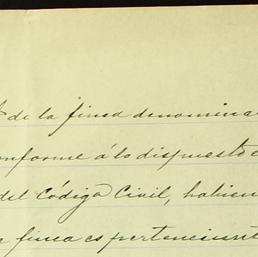 de la finca denomina
onforme á lo dispuesto e
del Código Civil, habien
finca es perteneciente